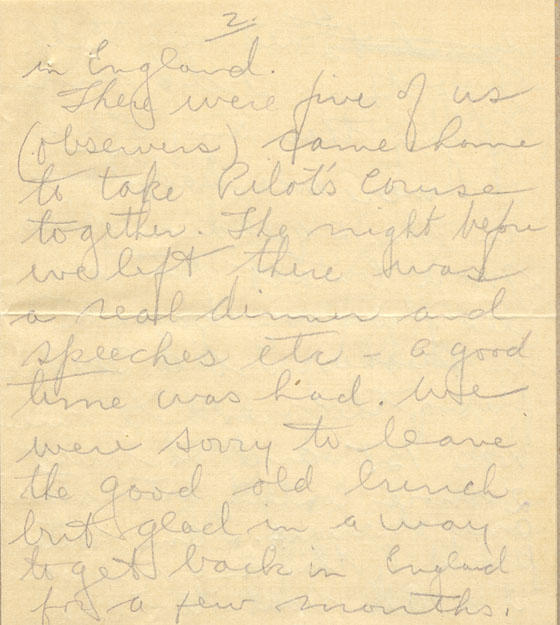 2.
in England.
There were five of us
(observers) came home
to take Pilot's Course
together. The night before
we left there was
a real dinner and
speeches etc - a good
time was had. We
were sorry to leave
the good old bunch
but glad in a way
to get back in England
for a few months.